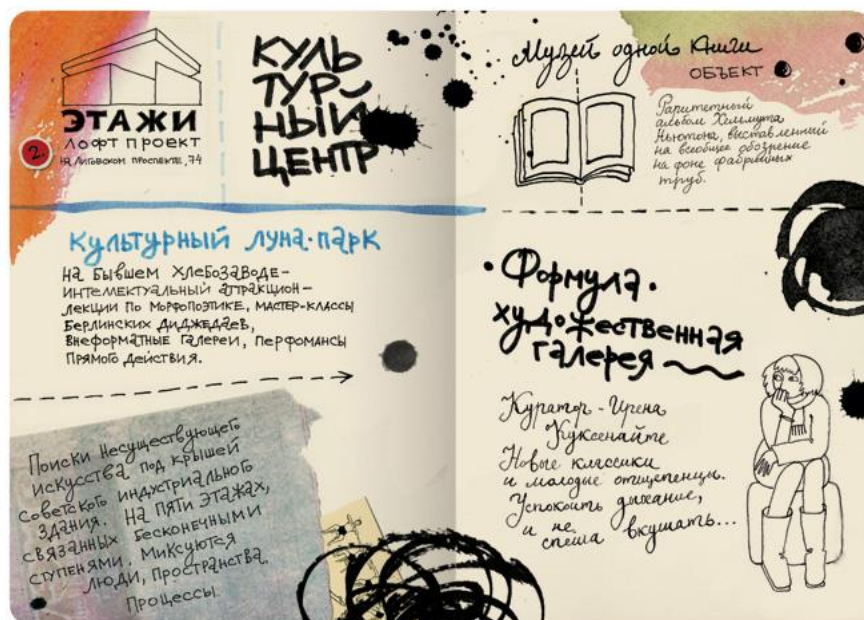 ЭТАЖИ
ЛОФТ ПРОЕКТ
НА ЛИГОВСКОМ ПРОСПЕКТЕ, 74
2.
КУЛЬ
ТУР-
НЫЙ
ЦЕНТР
КУЛЬТУРНЫЙ ЛУНА-ПАРК
НА БЫВШЕМ ХЛЕБОЗАВОДЕ –
ИНТЕЛЛЕКТУАЛЬНЫЙ АТТРАКЦИОН –
ЛЕКЦИИ ПО МОРФОПОЭТИКЕ, МАСТЕР-КЛАССЫ
БЕРЛИНСКИХ ДИДЖЕДАЕВ,
ВНЕФОРМАТНЫЕ ГАЛЕРЕИ, ПЕРФОМАНСЫ
ПРЯМОГО ДЕЙСТВИЯ.
Поиски несуществующего
искусства под крышей
советского индустриального
здания. На пяти этажах,
связанных бесконечными
ступенями, миксуются
люди, пространства,
процессы.
Музей одной Книги
ОБЪЕКТ
Раритетный
альбом Хельмута
Ньютона, выставленный
на всеобщее обозрение
на фоне фабричных
труб.
Формула.
художественная
галерея
Куратор - Ирена
Куксенайте
Новые классики
и молодые отщепенцы.
Успокоить дыхание,
и не
спеша вкушать...